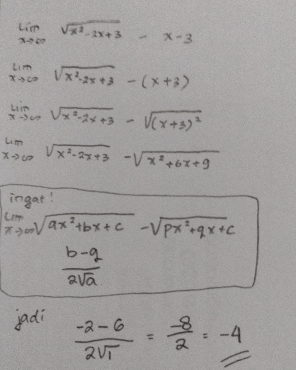 lim x→∞ √(x²-2x+3) - x-3
lim x→∞ √(x²-2x+3) - (x+3)
lim x→∞ √(x²-2x+3) - √((x+3)²)
lim x→∞ √(x²-2x+3) - √(x²+6x+9)
ingat!
lim x→∞ √(ax²+bx+c) - √(px²+qx+c)
b-q
2√a
jadi
-2-6 / 2√1 = -8 / 2 = -4